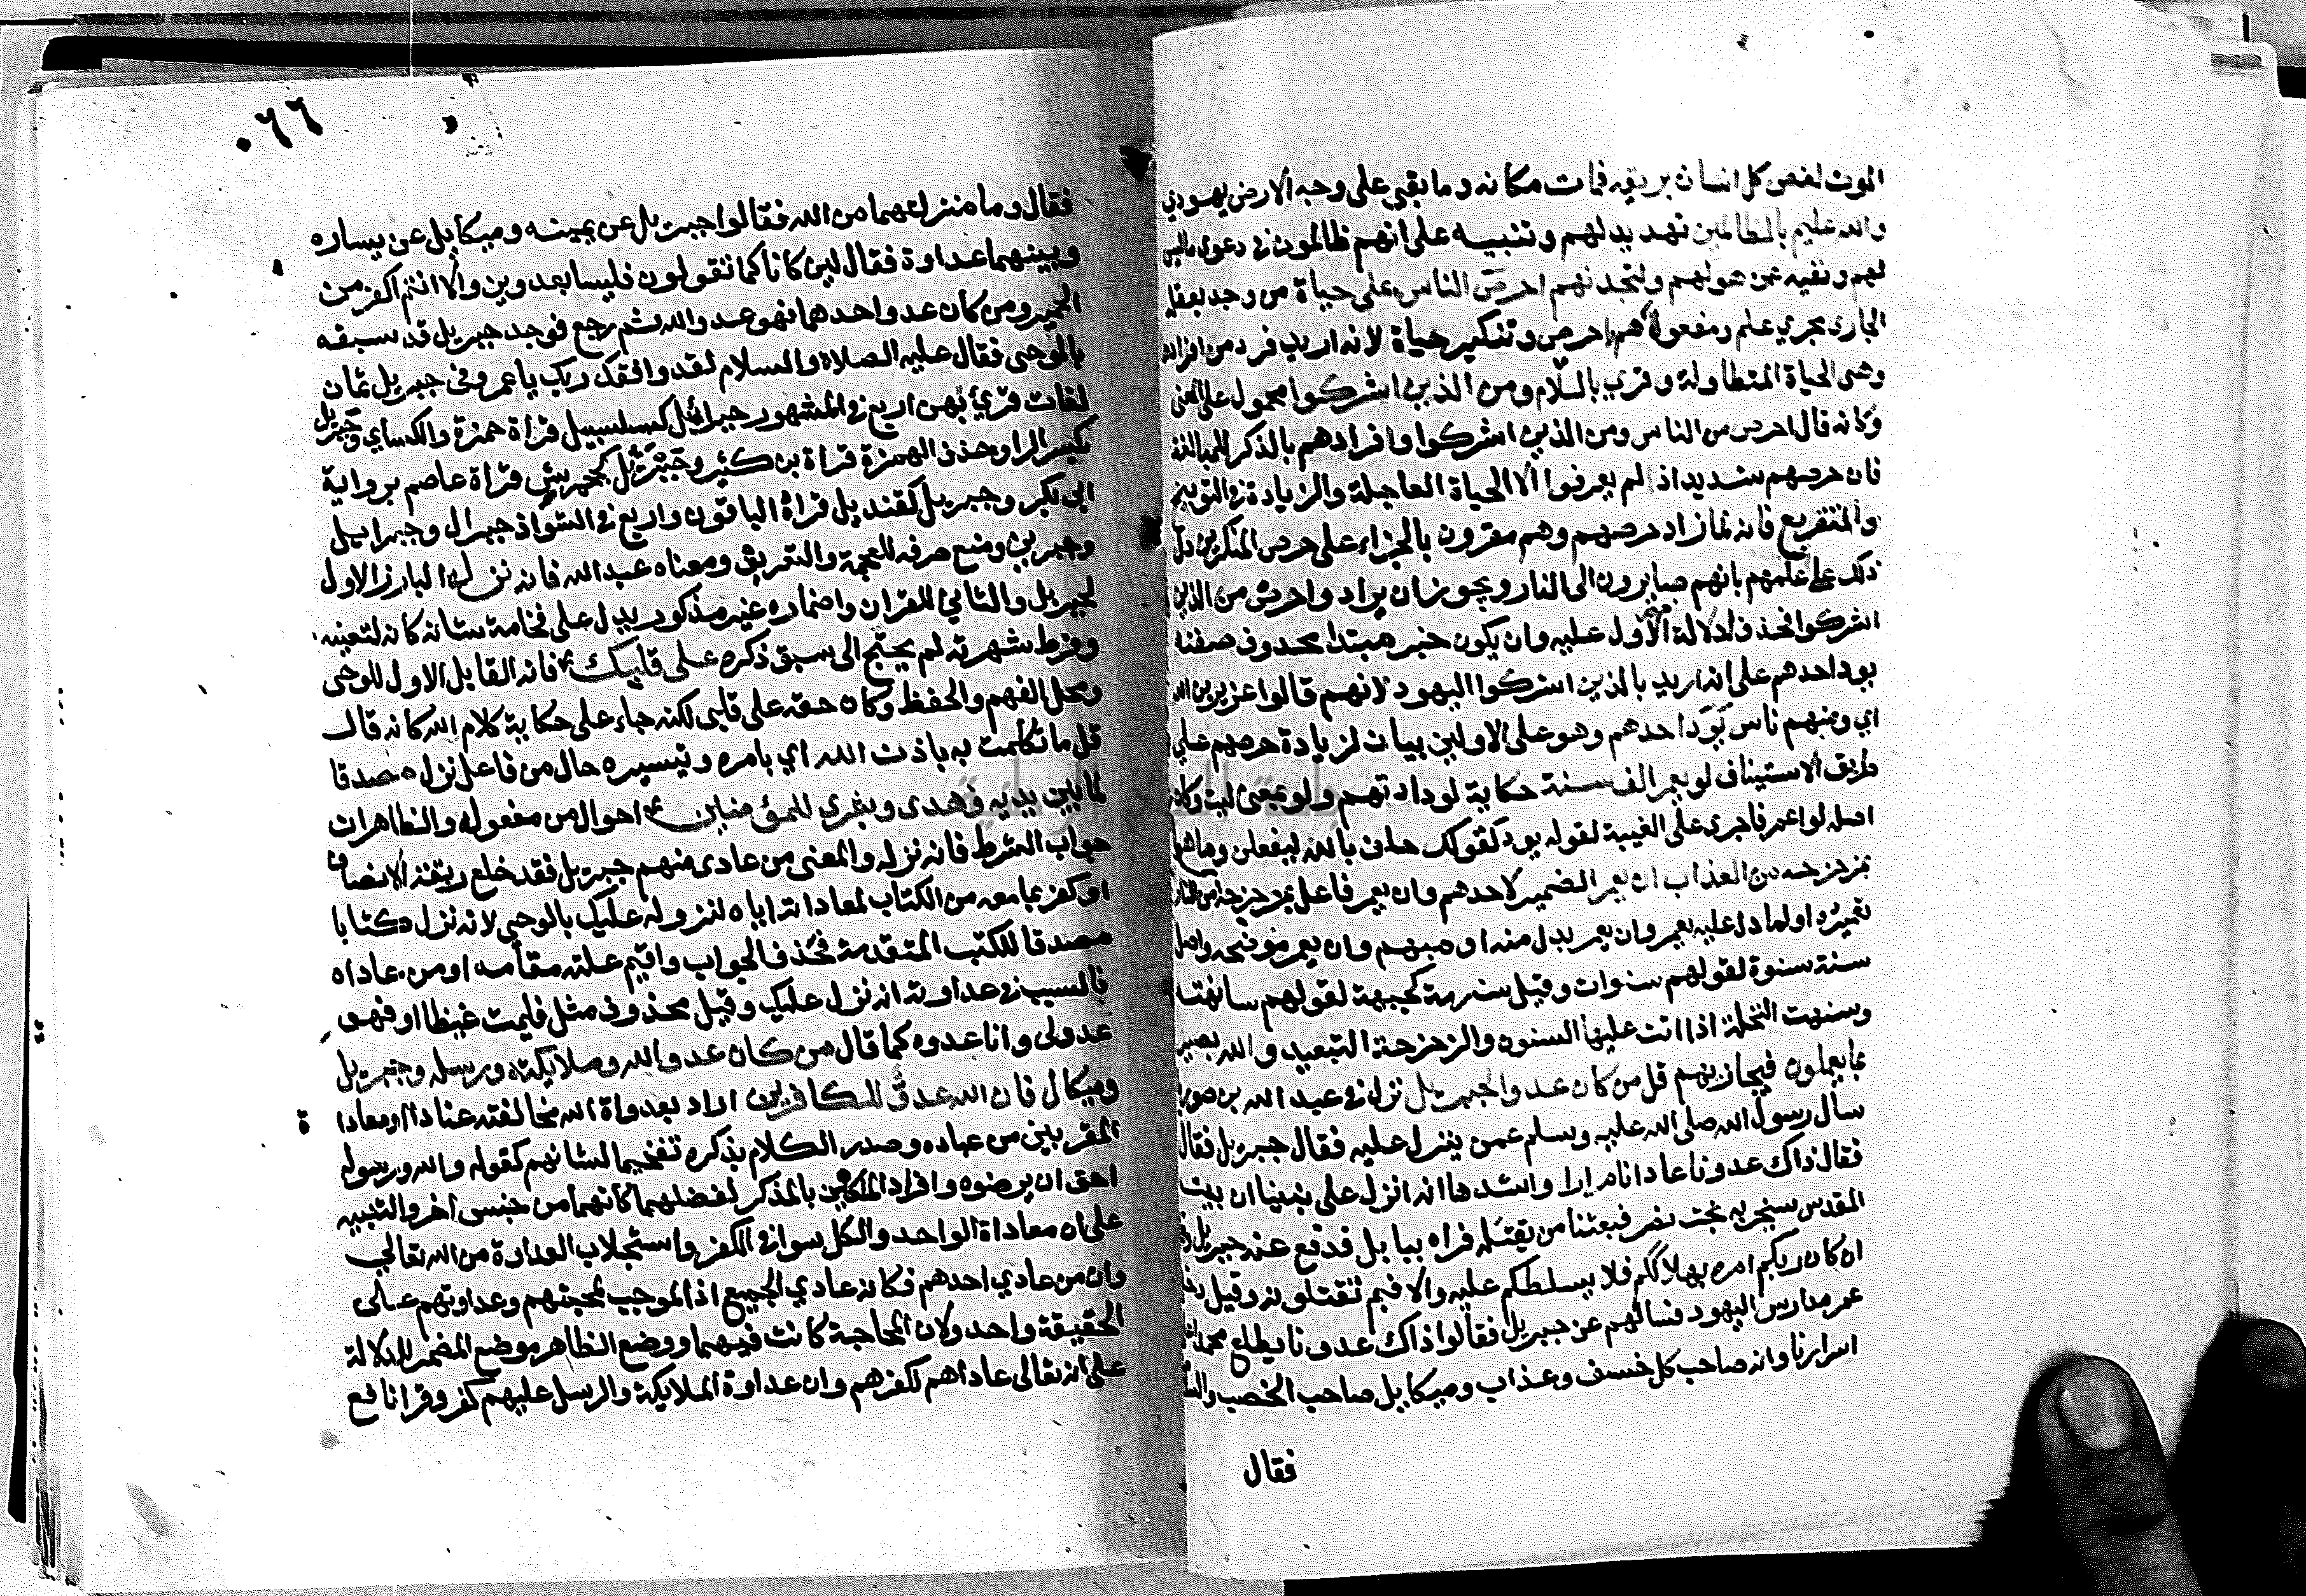 الموت لغص كل انسان بريقه فمات مكانه وما بقى على وجه الارض يهودي
والله عليم بالظالمين تهديد لهم وتنبيه على انهم ظالمون في دعوى ماليس
لهم ونفيه عن هو لهم ولتجدنهم احرص الناس على حياة من وجد بعقله
الجاري مجري علم ومفعولاه هم واحرص وتنكير حياة لانه اريد فرد من افرادها
وهى الحياة المتطاولة وقري بالسلام ومن الذين اشركوا محمول على المعنى
وكانه قال احرص من الناس ومن الذين اشركوا وافرادهم بالذكر للمبالغة
فان حرصهم شديد اذ لم يعرفوا الا الحياة العاجلة والزيادة في التوبيخ
والتقريع فانه لما زاد حرصهم وهم مقرون بالجزاء على حرص المنكرين دل
ذلك على علمهم بانهم صايرون الى النار ويجوز ان يراد واحرص من الذين
اشركوا فحذف لدلالة الاول عليه وان يكون خبر مبتدا محذوف صفته
يود احدهم على انه اريد بالذين اشركوا اليهود لانهم قالوا عزير بن الله
اي ومنهم ناس يود احدهم وهو على الاولين بيان لزيادة حرصهم على
طريق الاستيناف لو يعمر الف سنة حكاية لودادتهم ولو بمعنى ليت وكان
اصله لو اعمر فاجرى على الغيبة لقوله يود كقولك حلف بالله ليفعلن وما هو
بمزحزحه من العذاب ان يعمر الضمير لاحدهم وان يعمر فاعل بمزحزحه من النار
تعميره او لما دل عليه يعمر وان يعمر بدل منه او مبهم وان يعمر موضحه واصل
سنة سنوة لقولهم سنوات وقيل سنهة كجبهة لقولهم سانهته
وسنهت النخلة اذا اتت عليها السنون والزحزحة التبعيد والله بصير
بما يعملون فيجازيهم قل من كان عدوا لجبريل نزل في عبد الله بن صوريا
سال رسول الله صلى الله عليه وسلم عمن ينزل عليه فقال جبريل فقال
فقال ذاك عدونا عادانا مرارا واشدها انه انزل على نبينا ان بيت
المقدس سيخربه بخت نصر فبعثنا من يقتله فراه ببابل فدفع عنه جبريل
ان كان ربكم امره بهلاككم فلا يسلطكم عليه والا فبم تقتلونه وقيل دخل
عمر مدارس اليهود فسالهم عن جبريل فقالوا ذاك عدونا يطلع محمدا
اسرارنا وانه صاحب كل خسف وعذاب وميكايل صاحب الخصب والسلم
فقال
٠٦٦
فقال وما منزلتهما من الله فقالوا جبريل عن يمينه وميكايل عن يساره
وبينهما عداوة فقال لين كانا كما تقولون فليسا بعدوين ولا انتم اكفر من
الحمير ومن كان عدو احدهما فهو عدو الله ثم رجع فوجد جبريل قد سبقه
بالوحى فقال عليه الصلاة والسلام لقد وافقك ربك يا عمر وفى جبريل ثمان
لغات قري بهن اربع في المشهور جبرائل كسلسبيل قراة حمزة والكساي وجبريل
بكسر الرا وحذف الهمزة قراة بن كثير وجبرئل كجحمرش قراة عاصم برواية
ابى بكر وجبريل كقنديل قراة الباقون واربع في الشواذ جبرال وجبرايل
وجبرين ومنع صرفه للعجمة والتعريف ومعناه عبد الله فانه نزله البارز الاول
لجبريل والثاني للقران واضماره غير مذكور يدل على فخامة شانه كانه لتعينه
وفرط شهرته لم يحتج الى سبق ذكره على قلبك فانه القابل الاول للوحى
ومحل الفهم والحفظ وكان حقه على قلبى لكنه جاء على حكاية كلام الله كانه قال
قل ما تكلمت به باذن الله اي بامره وتيسيره حال من فاعل نزله مصدقا
لما بين يديه وهدى وبشرى للمؤمنين احوال من مفعوله والظاهر ان
جواب الشرط فانه نزله والمعنى من عادى منهم جبريل فقد خلع ربقة الانصاف
او كفر بما معه من الكتاب لمعاداته اياه لنزوله عليك بالوحي لانه نزل كتابا
مصدقا للكتب المتقدمة فحذف الجواب واقيم علته مقامه او من عاداه
فالسبب في عداوته انه نزل عليك وقيل محذوف مثل فليمت غيظا او فهو
عدو لى وانا عدوه كما قال من كان عدوا لله وملايكته ورسله وجبريل
وميكال فان الله عدو للكافرين اراد بعداوة الله مخالفته عنادا او معاداة
المقربين من عباده وصدر الكلام بذكره تفخيما لشانهم كقوله والله ورسوله
احق ان يرضوه وافراد الملكين بالذكر لفضلهما كانهما من جنس اخر والتنبيه
على ان معاداة الواحد والكل سوا في الكفر واستجلاب العداوة من الله تعالى
وان من عادي احدهم فكانه عادي الجميع اذ الموجب لمحبتهم وعداوتهم على
الحقيقة واحد ولان المحاجة كانت فيهما ووضع الظاهر موضع المضمر للدلالة
على انه تعالى عاداهم لكفرهم وان عداوة الملايكة والرسل عليهم كفر وقرا نافع